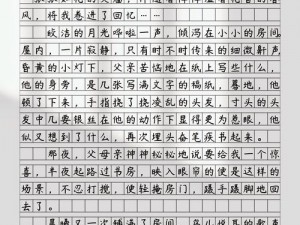 风，将我卷进了回忆……
皎洁的月光哗啦一声，倾泻在小小的房间
屋内，一片寂静，只有时不时传来的细微鼾声
昏黄的小灯下，父亲苦恼地在纸上写些什么，
他的身旁，是几张写满文字的稿纸，蓦地，他
顿了下来，手指挠了挠凌乱的头发，寸头的头
发中几要银丝在他的动作下显得更为惹眼，他
似又想到了什么，再次埋头奋笔疾书起来。
那夜，父母亲神神秘秘地说要给我一个惊
喜，半夜起路过书房，映入眼帘的便是这样的
场景，不忍打搅，便轻掩房门，蹑手蹑脚地回
去了。